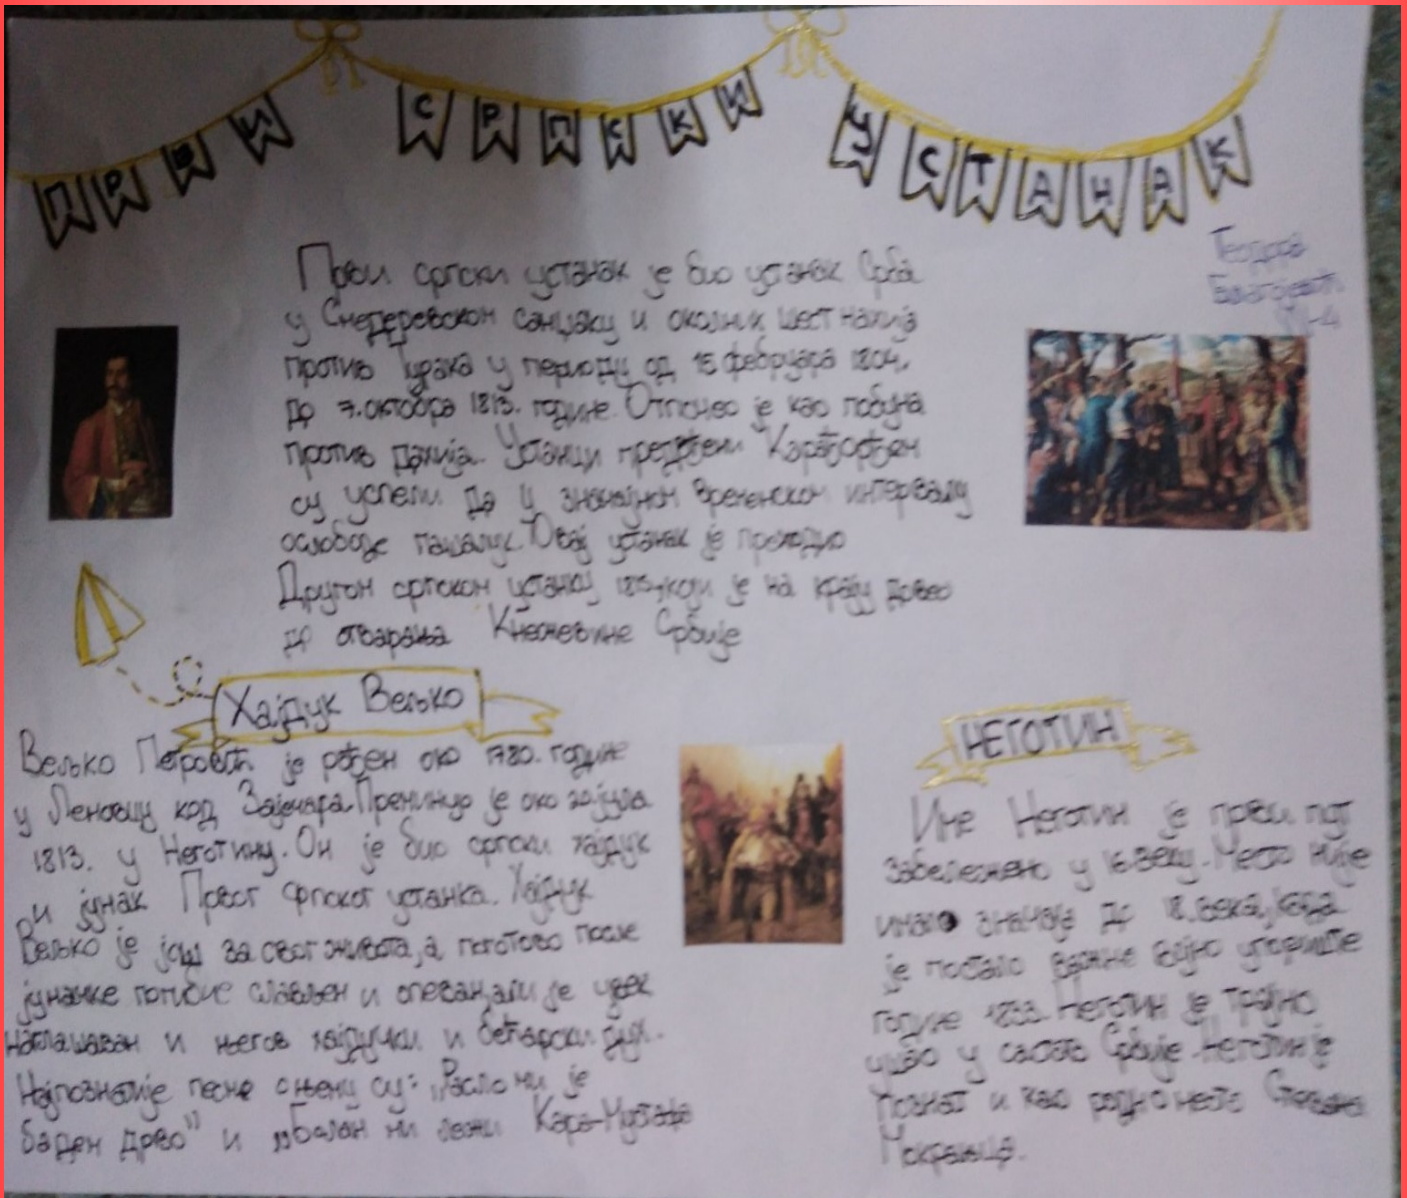 ПРВИ СРПСКИ УСТАНАК
Теодора
Благојевић
Први српски устанак је био устанак Срба
у Смедеревском санџаку и околних шест нахија
против Турака у периоду од 15 фебруара 1804.
до 7. октобра 1813. године. Отпочео је као побуна
против дахија. Устанци предвђени Карађорђем
су успели да у значајном временском интервалу
ослободе пашалук. Овај устанак је преходио
Другом српском устанку 1815, који је на крају довео
до стварања Кнежевине Србије
Хајдук Вељко
Вељко Петровић је рођен око 1780. године
у Леновцу код Зајечара. Преминуо је око 20 јула
1813. у Неготину. Он је био српски хајдук
и јунак Првог српског устанка. Хајдук
Вељко је још за свог живота, а поготово после
јуначке погибије слављен и опеван, али је увек
наглашаван и његов хајдучки и бећарски дух.
Најпознатије песме о њему су: „Расло ми је
бадем дрво" и „Болан ми лежи Кара-Мустафа
НЕГОТИН
Име Неготин је први пут
забележено у 16. веку. Место није
имало значаја до 18. века, када
је постало важне војно упориште
године 1833. Неготин је трајно
ушао у састав Србије. Неготин је
познат и као родно место Стевана
Мокрањца.